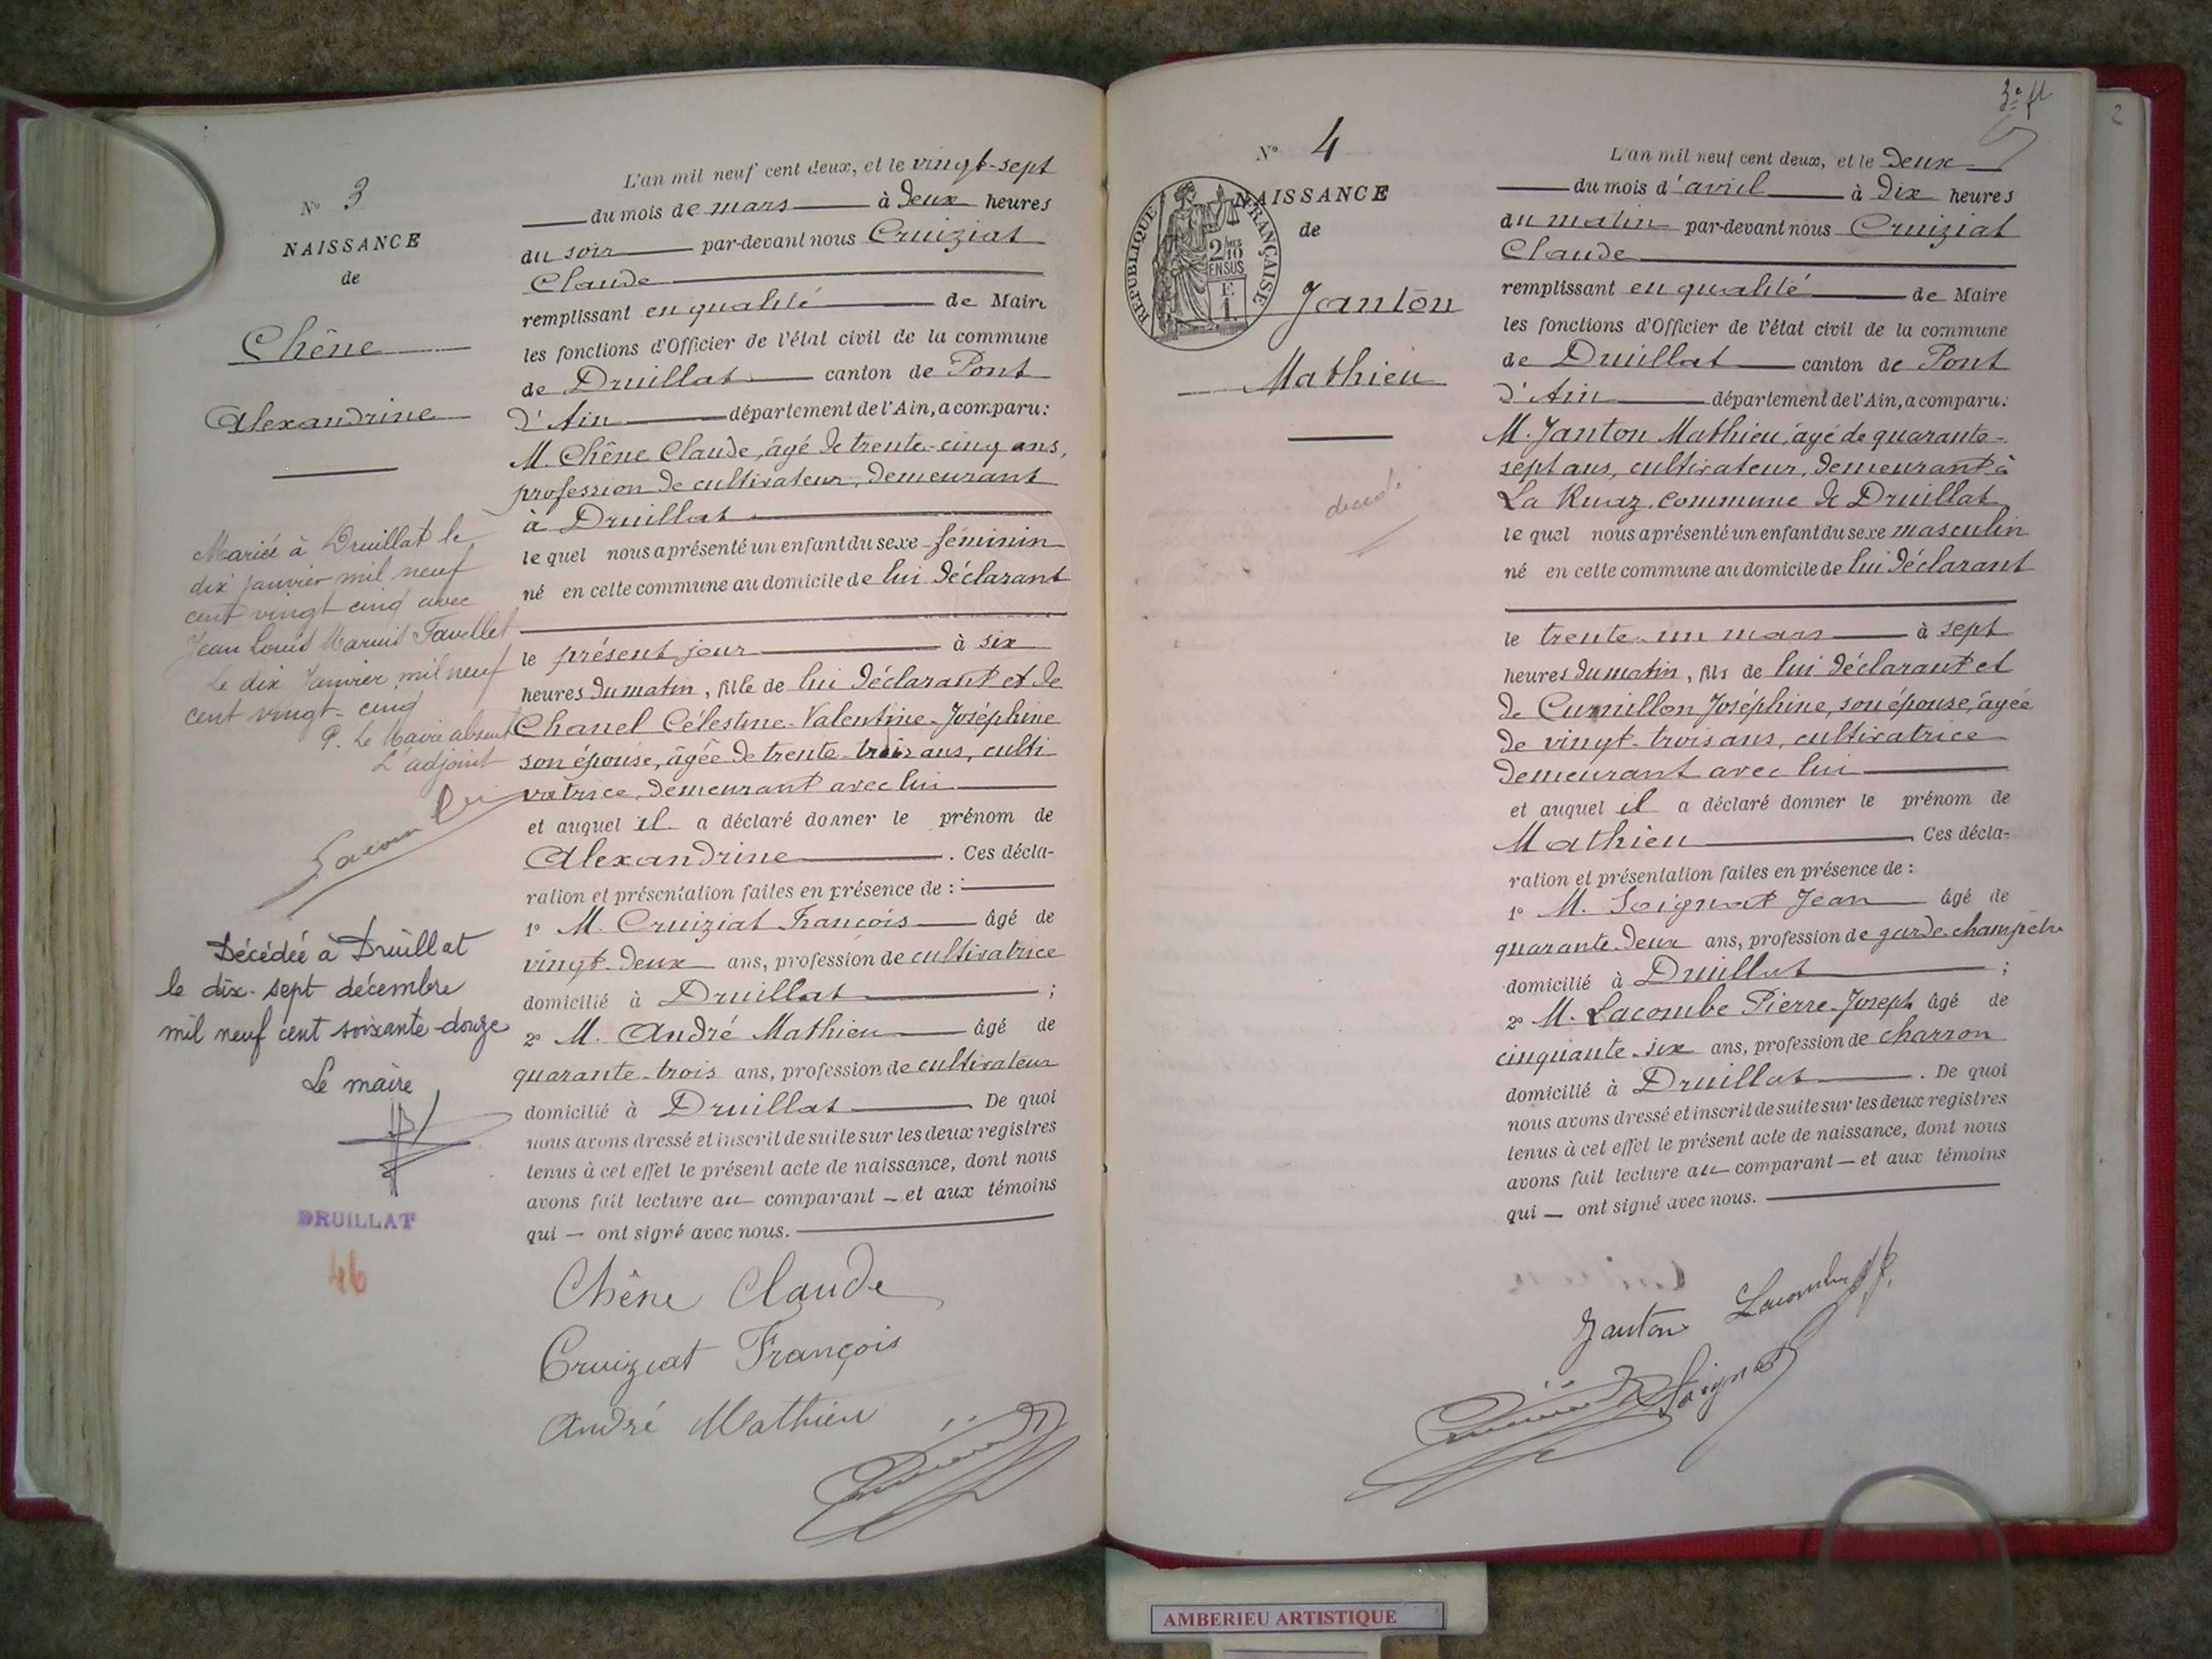 N° 3
NAISSANCE
de
Chêne
Alexandrine
Mariée à Druillat le
dix janvier mil neuf
cent vingt cinq avec
Jean Louis Marius Favellet
Le dix Janvier mil neuf
cent vingt-cinq
P. Le Maire absent
L'adjoint
Décédée à Druillat
le dix-sept décembre
mil neuf cent soixante-douze
Le maire
DRUILLAT
46
L'an mil neuf cent deux, et le vingt-sept
du mois de mars à deux heures
du soir par-devant nous Cruiziat
Claude
remplissant en qualité de Maire
les fonctions d'Officier de l'état civil de la commune
de Druillat canton de Pont
d'Ain département de l'Ain, a comparu:
M. Chêne Claude, âgé de trente-cinq ans,
profession de cultivateur, demeurant
à Druillat
le quel nous a présenté un enfant du sexe féminin
né en cette commune au domicile de lui déclarant
le présent jour à six
heures du matin, fille de lui déclarant et de
Chanel Célestine-Valentine-Joséphine
son épouse, âgée de trente-trois ans, culti
vatrice, demeurant avec lui
et auquel il a déclaré donner le prénom de
Alexandrine. Ces décla-
ration et présentation faites en présence de :
1° M. Cruiziat François âgé de
vingt-deux ans, profession de cultivatrice
domicilié à Druillat ;
2° M. André Mathieu âgé de
quarante-trois ans, profession de cultivateur
domicilié à Druillat De quoi
nous avons dressé et inscrit de suite sur les deux registres
tenus à cet effet le présent acte de naissance, dont nous
avons fait lecture au comparant – et aux témoins
qui – ont signé avec nous.
Chêne Claude
Cruiziat François
André Mathieu
3e ft
2
N° 4
NAISSANCE
de
RÉPUBLIQUE FRANÇAISE
2/10 EN SUS
Janton
Mathieu
décédé
L'an mil neuf cent deux, et le deux
du mois d'avril à dix heures
du matin par-devant nous Cruiziat
Claude
remplissant en qualité de Maire
les fonctions d'Officier de l'état civil de la commune
de Druillat canton de Pont
d'Ain département de l'Ain, a comparu:
M. Janton Mathieu, âgé de quarante-
sept ans, cultivateur, demeurant à
La Ruaz, commune de Druillat
le quel nous a présenté un enfant du sexe masculin
né en cette commune au domicile de lui déclarant
le trente-un mars à sept
heures du matin, fils de lui déclarant et
de Curnillon Joséphine, son épouse, âgée
de vingt-trois ans, cultivatrice
demeurant avec lui
et auquel il a déclaré donner le prénom de
Mathieu Ces décla-
ration et présentation faites en présence de :
1° M. Soignat Jean âgé de
quarante-deux ans, profession de garde-champêtre
domicilié à Druillat ;
2° M. Lacombe Pierre-Joseph âgé de
cinquante-six ans, profession de charron
domicilié à Druillat. De quoi
nous avons dressé et inscrit de suite sur les deux registres
tenus à cet effet le présent acte de naissance, dont nous
avons fait lecture au comparant – et aux témoins
qui – ont signé avec nous.
Janton Lacombe
Soignat
AMBERIEU ARTISTIQUE